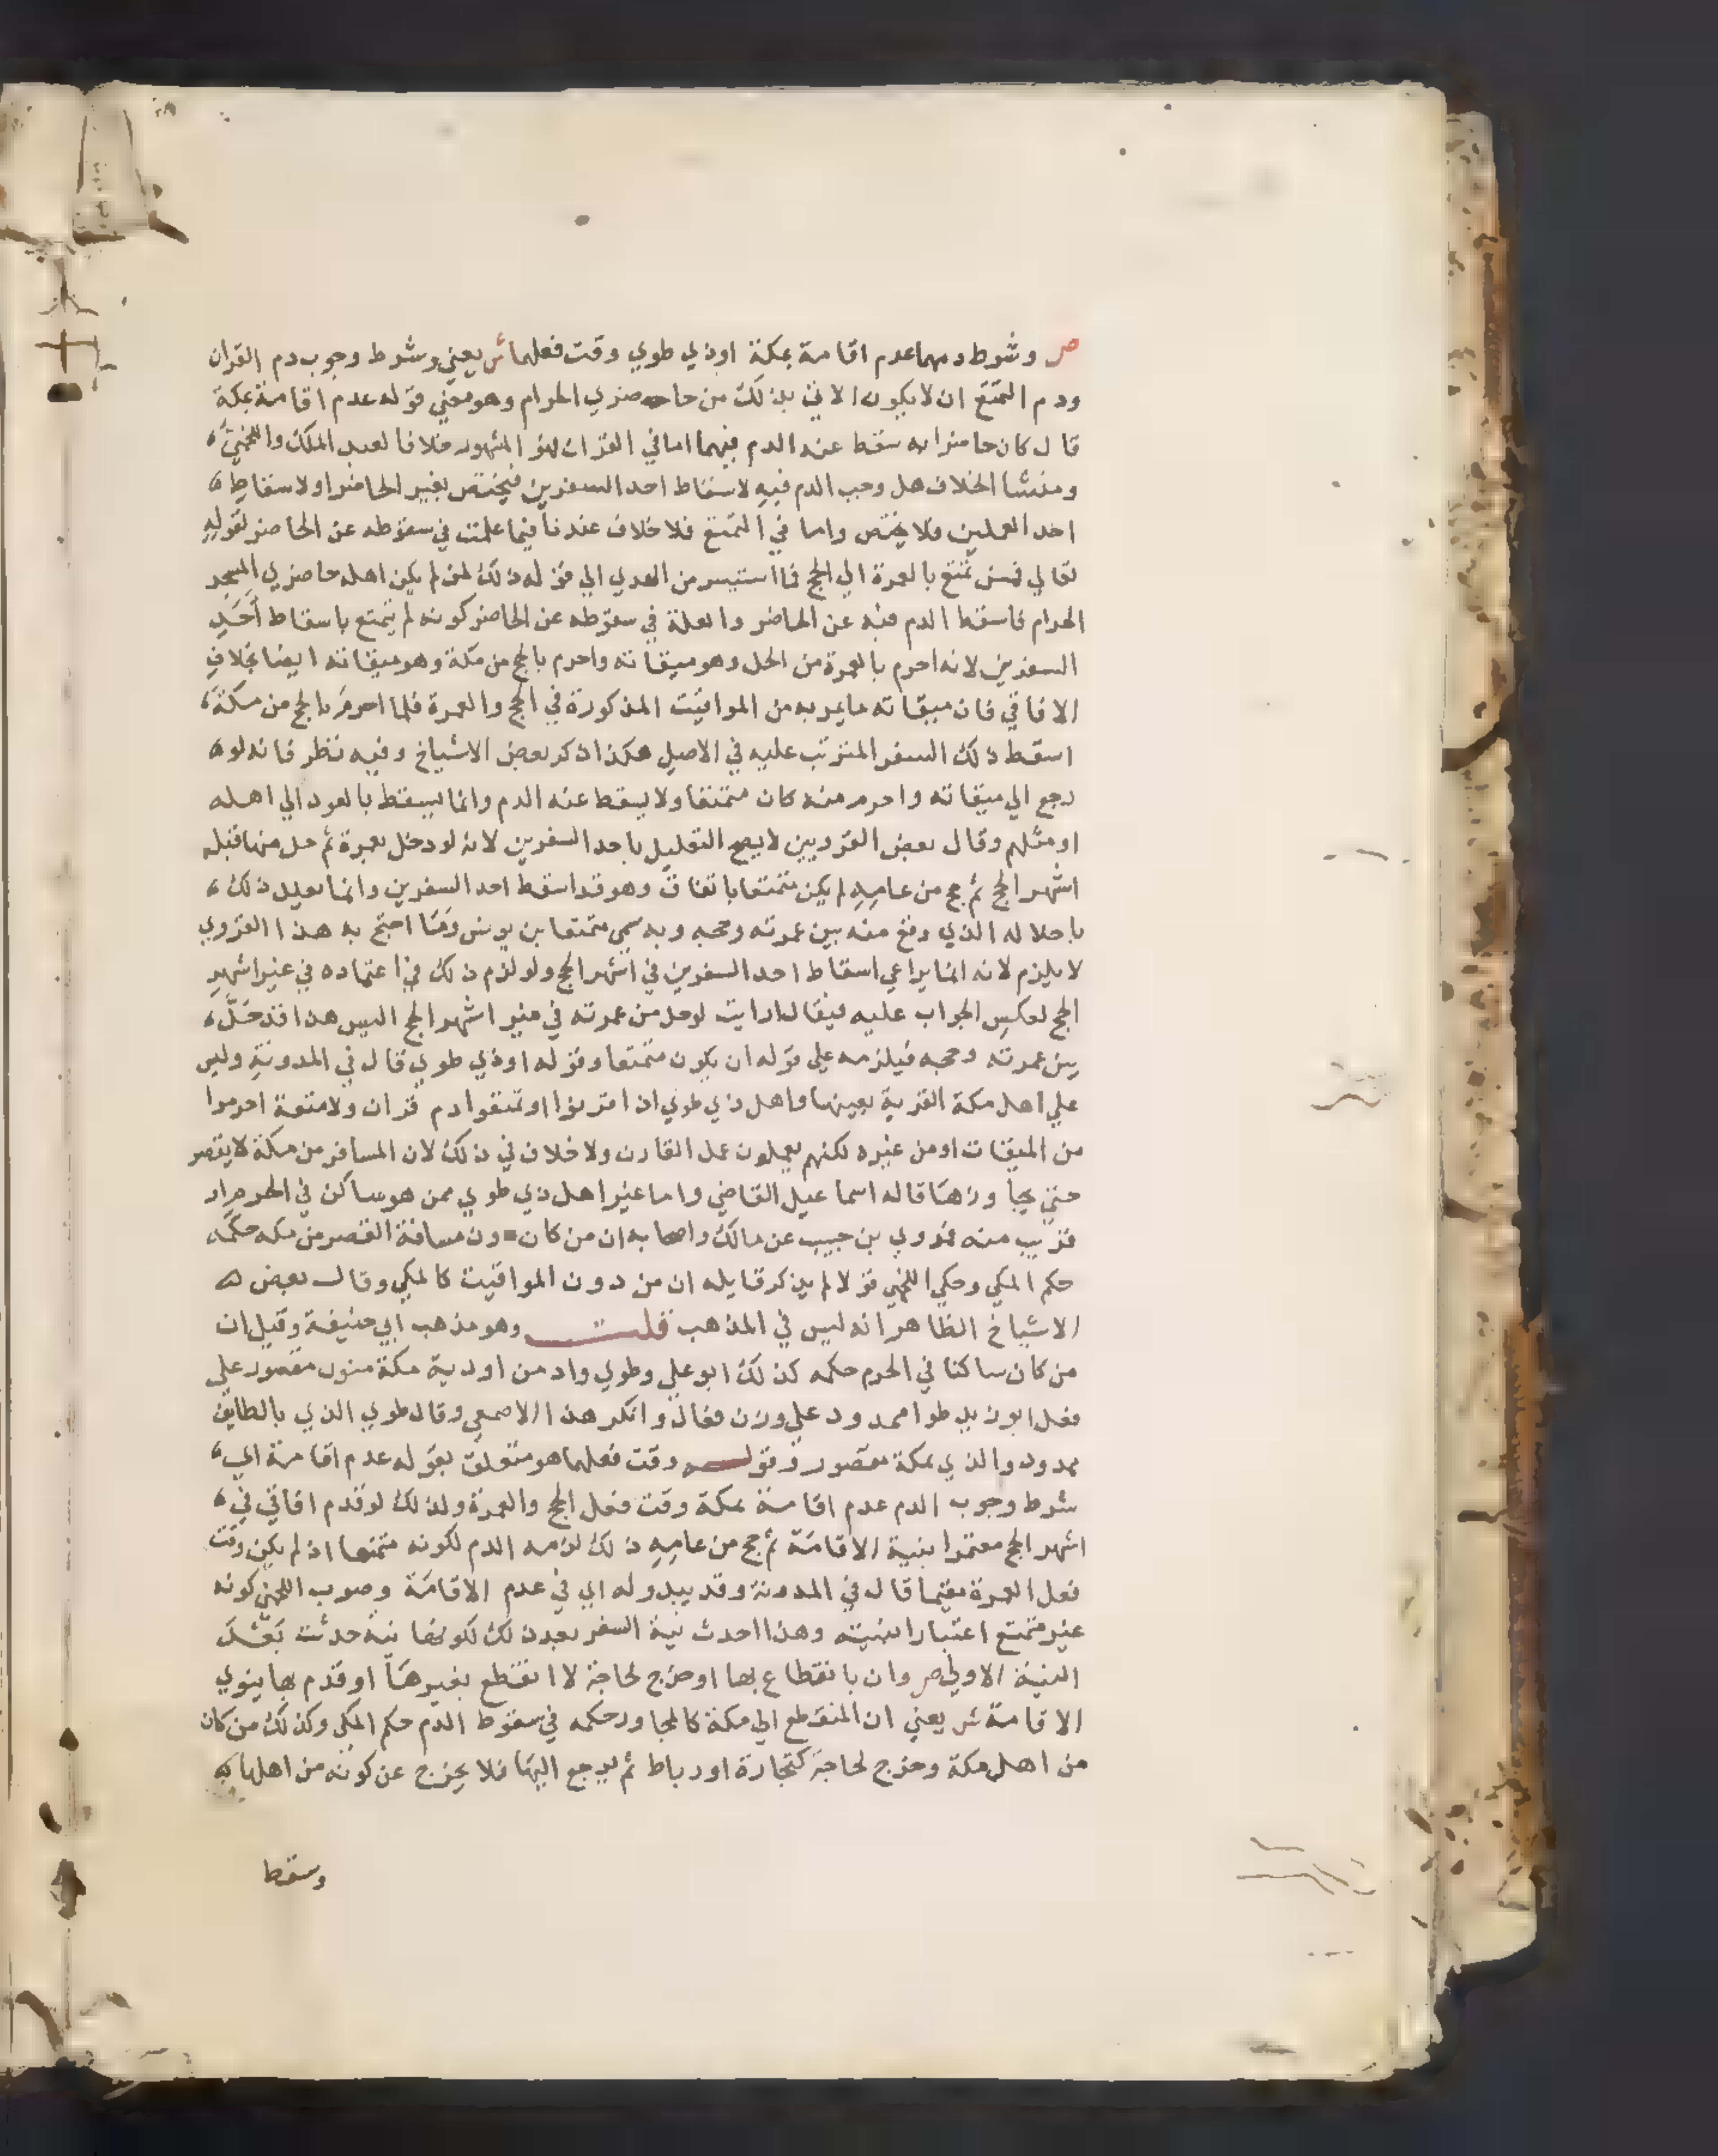 ص وشرط دمهما عدم اقامة بمكة اوذي طوي وقت فعلهما ش يعني وشرط وجوب دم القران
ودم التمتع ان لا يكون الاتي بذلك من حاضري الحرام وهو معني قوله عدم اقامة بمكة
قال كان حاضرا به سقط عنه الدم فيهما اما في القران فهو المشهور خلافا لعبد الملك واللخمي
ومنشا الخلاف هل وجب الدم فيه لاسقاط احد السفرين فيختص بغير الحاضر او لاسقاط
احد العملين فلا يختص واما في التمتع فلا خلاف عندنا فيما علمت في سقوطه عن الحاضر لقوله
تعالي فمن تمتع بالعمرة الي الحج فما استيسر من الهدي الي قوله ذلك لمن لم يكن اهله حاضري المسجد
الحرام فاسقط الدم فيه عن الحاضر والعلة في سقوطه عن الحاضر كونه لم يتمتع باسقاط احد
السفرين لانه احرم بالعمرة من الحل وهو ميقاته واحرم بالحج من مكة وهو ميقاته ايضا بخلاف
الافاقي فان ميقاته ما يمر به من المواقيت المذكورة في الحج والعمرة فلما احرم بالحج من مكة
اسقط ذلك السفر المترتب عليه في الاصل هكذا ذكر بعض الاشياخ وفيه نظر فانه لو
رجع الي ميقاته واحرم منه كان متمتعا ولا يسقط عنه الدم وانما يسقط بالعود الي اهله
او مثلهم وقال بعض القرويين لا يصح التعليل باحد السفرين لانه لو دخل بعمرة ثم حل منها قبل
اشهر الحج ثم حج من عامه لم يكن متمتعا باتفاق وهو قد اسقط احد السفرين وانما يعلل ذلك
باحلاله الذي وقع منه بين عمرته وحجه وبه سمي متمتعا بن يونس وما احتج به هذا القروي
لا يلزم لانه انما يراعي اسقاط احد السفرين في اشهر الحج ولو لزم ذلك في اعتماده في غير اشهر
الحج لعكس الجواب عليه فيقال ارايت لو حل من عمرته في غير اشهر الحج اليس هذا قد حل
بين عمرته وحجه فيلزمه علي قوله ان يكون متمتعا وقوله اوذي طوي قال في المدونة وليس
علي اهل مكة القرية بعينها واهل ذي طوي اذا قرنوا او تمتعوا دم قران ولا متعة احرموا
من الميقات او من غيره لكنهم يعملون عمل القارن ولا خلاف في ذلك لان المسافر من مكة لا يقصر
حتي يجاوزها قاله اسماعيل القاضي واما غير اهل ذي طوي ممن هو ساكن في الحرم او
قريب منه فروي بن حبيب عن مالك واصحابه ان من كان دون مسافة القصر من مكه حكمه
حكم المكي وحكي اللخمي قولا لم يذكر قايله ان من دون المواقيت كالمكي وقال بعض
الاشياخ الظاهر انه ليس في المذهب قلت وهو مذهب ابي حنيفة وقيل ان
من كان ساكنا في الحرم حكمه كذلك ابو علي وطوي واد من اودية مكة منون مقصور علي
فعل ابو زيد طوا ممدود علي وزن فعال وانكر هذا الاصمعي وقال طوي الذي بالطايف
ممدود والذي بمكة مقصور وقوله وقت فعلهما هو متعلق بقوله عدم اقامة اي
شرط وجوب الدم عدم اقامة بمكة وقت فعل الحج والعمرة ولذلك لو قدم افاقي في
اشهر الحج معتمرا بنية الاقامة ثم حج من عامه ذلك لزمه الدم لكونه متمتعا اذ لم يكن وقت
فعل العمرة مقيما قال في المدونة وقد يبدو له اي في عدم الاقامة وصوب اللخمي كونه
غير متمتع اعتبارا بنيته وهذا احدث نية السفر بعد ذلك لكونها نية حدثت بعد
النية الاولي ص وان بانقطاع بها او خرج لحاجة لا انقطع بغيرها او قدم بها ينوي
الاقامة ش يعني ان المنقطع الي مكة كالمجاور حكمه في سقوط الدم حكم المكي وكذلك من كان
من اهل مكة وخرج لحاجة كتجارة او رباط ثم يرجع اليها فلا يخرج عن كونه من اهلها به
وسقط